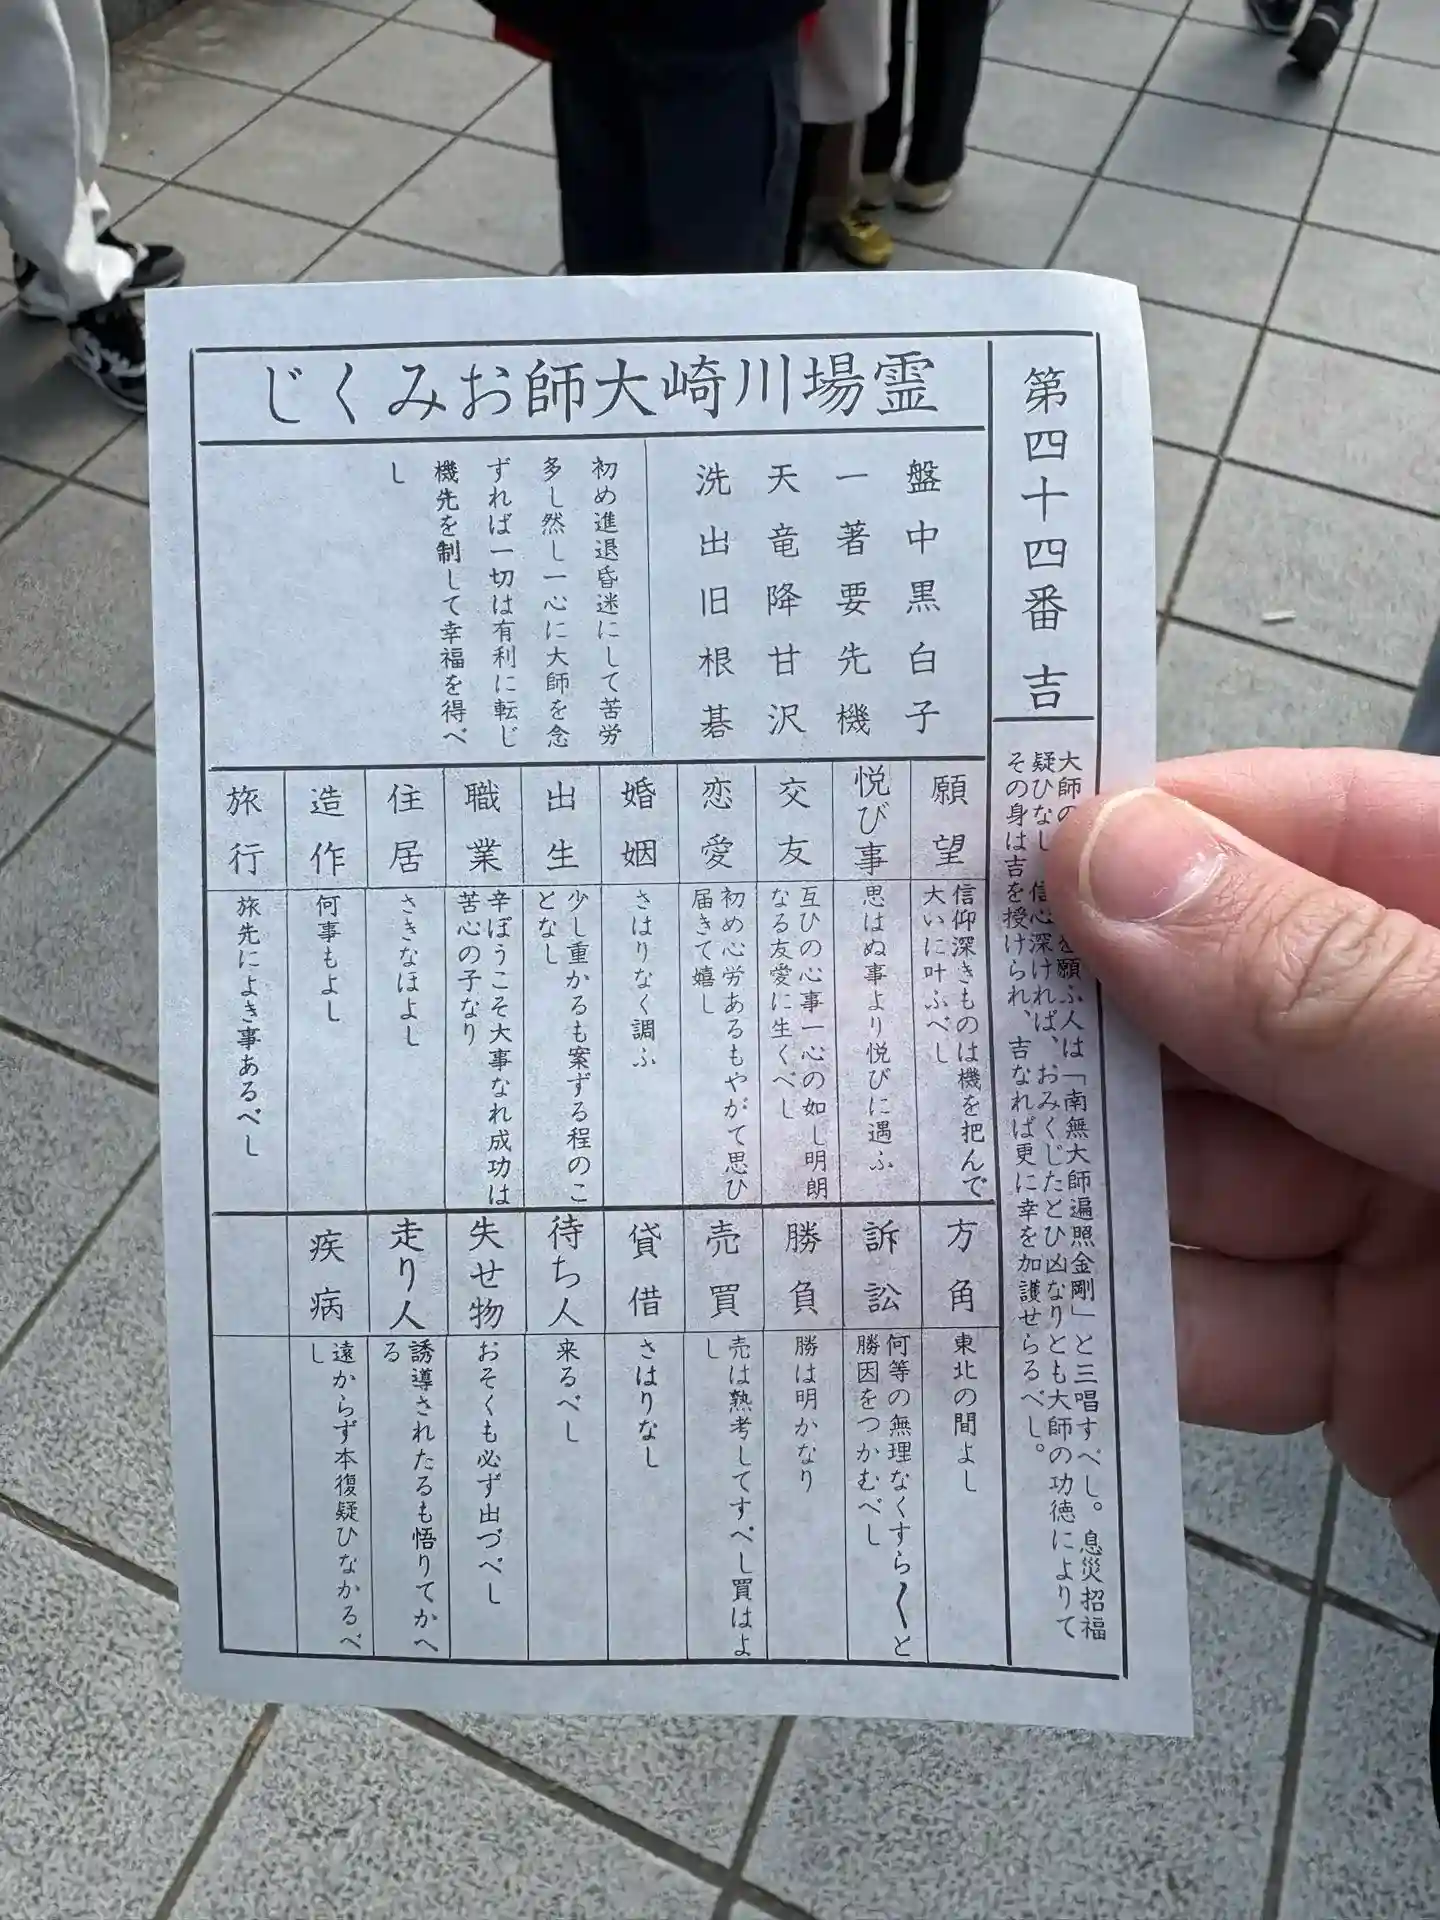 霊場川崎大師おみくじ
第四十四番 吉
大師の
を願ふ人は「南無大師遍照金剛」と三唱すべし。息災招福
疑ひなし
信心深ければ、おみくじたとひ凶なりとも大師の功徳によりて
その身は吉を授けられ、吉なれば更に幸を加護せらるべし。
盤中黒白子
一著要先機
天竜降甘沢
洗出旧根碁
初め進退昏迷にして苦労
多し然し一心に大師を念
ずれば一切は有利に転じ
機先を制して幸福を得べ
し
願望
信仰深きものは機を把んで
大いに叶ふべし
悦び事
思はぬ事より悦びに遇ふ
交友
互ひの心事一心の如し明朗
なる友愛に生くべし
恋愛
初め心労あるもやがて思ひ
届きて嬉し
婚姻
さはりなく調ふ
出生
少し重かるも案ずる程のこ
となし
職業
辛ぼうこそ大事なれ成功は
苦心の子なり
住居
さきなほよし
造作
何事もよし
旅行
旅先によき事あるべし
方角
東北の間よし
訴訟
何等の無理なくすら〱と
勝因をつかむべし
勝負
勝は明かなり
売買
売は熟考してすべし買はよ
し
貸借
さはりなし
待ち人
来るべし
失せ物
おそくも必ず出づべし
走り人
誘導されたるも悟りてかへ
る
疾病
遠からず本復疑ひなかるべ
し